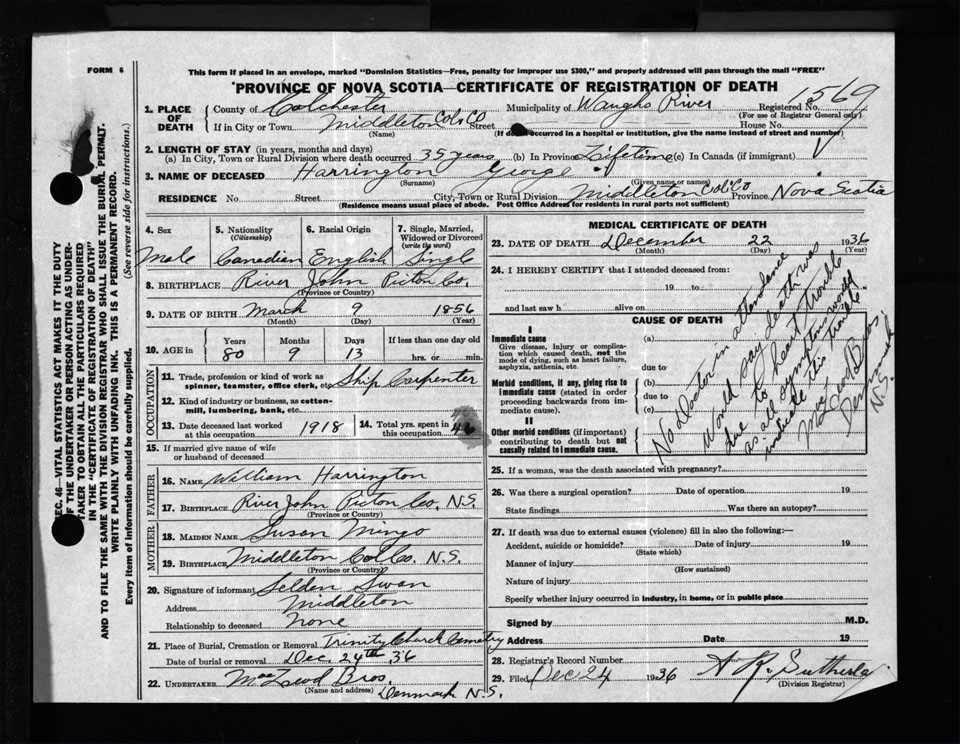 FORM 6
This form if placed in an envelope, marked "Dominion Statistics—Free, penalty for improper use $300," and properly addressed will pass through the mail "FREE"
PROVINCE OF NOVA SCOTIA—CERTIFICATE OF REGISTRATION OF DEATH
1. PLACE OF DEATH County of Colchester Municipality of Waughs River Registered No. 1569
(For use of Registrar General only)
If in City or Town Middleton Col. Co Street House No.
(Name) (If death occurred in a hospital or institution, give the name instead of street and number)
2. LENGTH OF STAY (in years, months and days)
(a) In City, Town or Rural Division where death occurred 35 years (b) In Province Lifetime (c) In Canada (if immigrant)
3. NAME OF DECEASED Harrington George
(Surname) (Given name or names)
RESIDENCE No Street City, Town or Rural Division Middleton Col Co Province Nova Scotia
(Residence means usual place of abode. Post Office Address for residents in rural parts not sufficient)
4. Sex 5. Nationality (Citizenship) 6. Racial Origin 7. Single, Married, Widowed or Divorced (write the word)
Male Canadian English Single
8. BIRTHPLACE River John Pictou Co.
(Province or Country)
9. DATE OF BIRTH March 9 1856
(Month) (Day) (Year)
10. AGE in Years Months Days If less than one day old
80 9 13 hrs. or min.
OCCUPATION
11. Trade, profession or kind of work as spinner, teamster, office clerk, etc Ship Carpenter
12. Kind of industry or business, as cotton-mill, lumbering, bank, etc.
13. Date deceased last worked at this occupation 1918 14. Total yrs. spent in this occupation 46
15. If married give name of wife or husband of deceased
FATHER
16. NAME William Harrington
17. BIRTHPLACE River John Pictou Co. N.S.
(Province or Country)
MOTHER
18. MAIDEN NAME Susan Mingo
19. BIRTHPLACE Middleton Col. Co. N.S.
(Province or Country)
20. Signature of informant Selden Swan
Address Middleton
Relationship to deceased None
21. Place of Burial, Cremation or Removal Trinity Church Cemetry
Date of burial or removal Dec. 24th, 36
22. UNDERTAKER MacLeod Bros.
(Name and address) Denmark N.S.
MEDICAL CERTIFICATE OF DEATH
23. DATE OF DEATH December 22 1936
(Month) (Day) (Year)
24. I HEREBY CERTIFY that I attended deceased from:
19 to
and last saw h alive on
CAUSE OF DEATH
I
Immediate cause
Give disease, injury or complication which caused death, not the mode of dying, such as heart failure, asphyxia, asthenia, etc.
Morbid conditions, if any, giving rise to immediate cause (stated in order proceeding backwards from immediate cause).
II
Other morbid conditions (if important) contributing to death but not causally related to immediate cause.
(a)
due to
(b)
due to
(c)
No Doctor in attendance
Would say death was
due to heart trouble
as all symptoms would
indicate this trouble
MacLeod Bros.
Denmark
N.S.
25. If a woman, was the death associated with pregnancy?
26. Was there a surgical operation? Date of operation 19
State findings Was there an autopsy?
27. If death was due to external causes (violence) fill in also the following:—
Accident, suicide or homicide? Date of injury 19
(State which)
Manner of injury
(How sustained)
Nature of injury
Specify whether injury occurred in industry, in home, or in public place
Signed by M.D.
Address Date 19
28. Registrar's Record Number
29. Filed Dec 24 1936 A. R. Sutherla
(Division Registrar)
SEC. 46—VITAL STATISTICS ACT MAKES IT THE DUTY
OF THE UNDERTAKER OR PERSON ACTING AS UNDER-
TAKER TO OBTAIN ALL THE PARTICULARS REQUIRED
IN THE "CERTIFICATE OF REGISTRATION OF DEATH"
AND TO FILE THE SAME WITH THE DIVISION REGISTRAR WHO SHALL ISSUE THE BURIAL PERMIT.
WRITE PLAINLY WITH UNFADING INK. THIS IS A PERMANENT RECORD.
Every item of information should be carefully supplied. (See reverse side for instructions.)